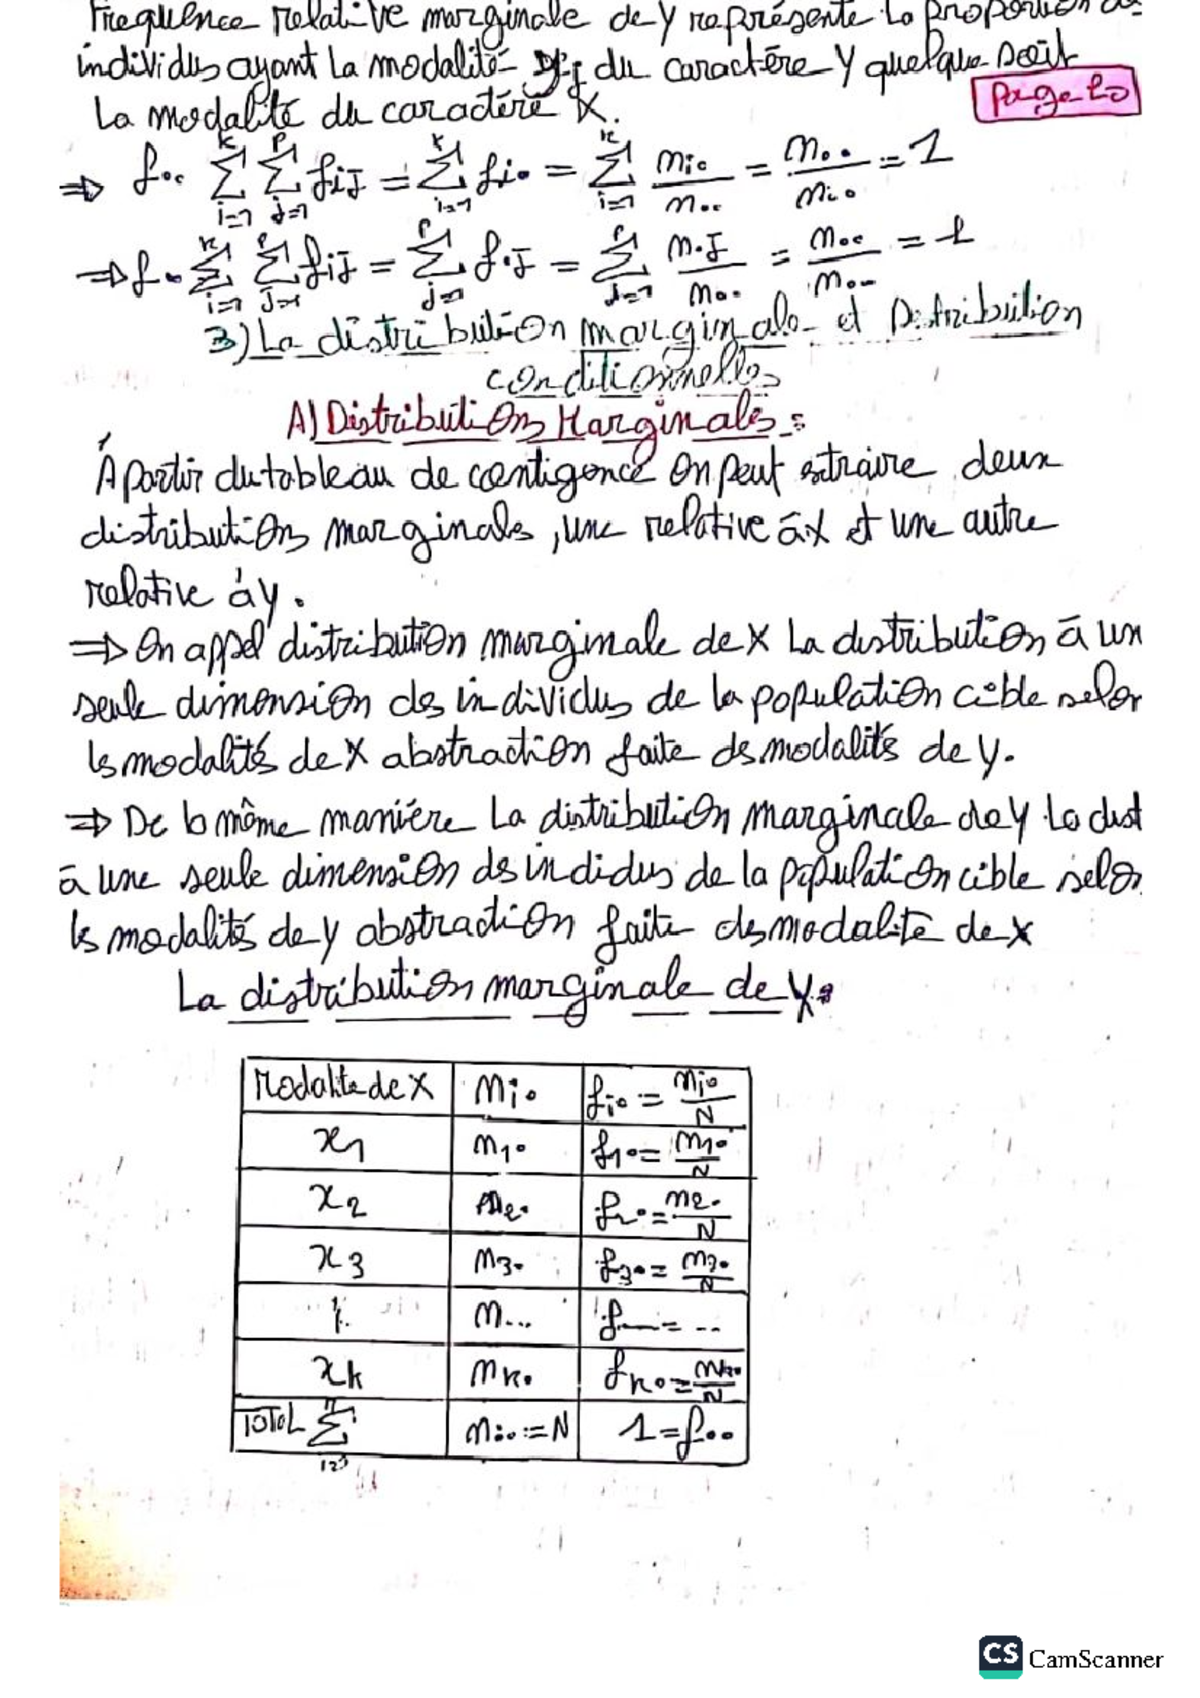 Frequence relative marginale de y représente la proportion des
individus ayant la modalité yj du caractère y quelque soit
la modalité du caractère X.
page 20
⇒ f.. Σ(i=1,k) Σ(j=1,p) fij = Σ(i=1,k) fi. = Σ(i=1,k) ni./n.. = n../n.. = 1
⇒ f. Σ(i=1,k) Σ(j=1,p) fij = Σ(j=1,p) f.j = Σ(j=1,p) n.j/n.. = n../n.. = 1
3) La distribution marginale et Distribution
conditionnelles
A) Distributions Marginales :
A partir du tableau de contigence on peut extraire deux
distributions marginales, une relative à x et une autre
relative à y.
⇒ On appel distribution marginale de X la distribution à un
seule dimension des individus de la population cible selon
les modalités de X abstraction faite des modalités de y.
⇒ De la même manière la distribution marginale de y la dist
à une seule dimension des individus de la population cible selon
les modalités de y abstraction faite des modalité de x
La distribution marginale de X :
Modalité de X | ni. | fi. = ni./N
x1 | n1. | f1. = n1./N
x2 | n2. | f2. = n2./N
x3 | n3. | f3. = n3./N
⋮ | n... | f... = ..
xk | nk. | fk. = nk./N
TOTAL Σ | ni. = N | 1 = f..
CS CamScanner